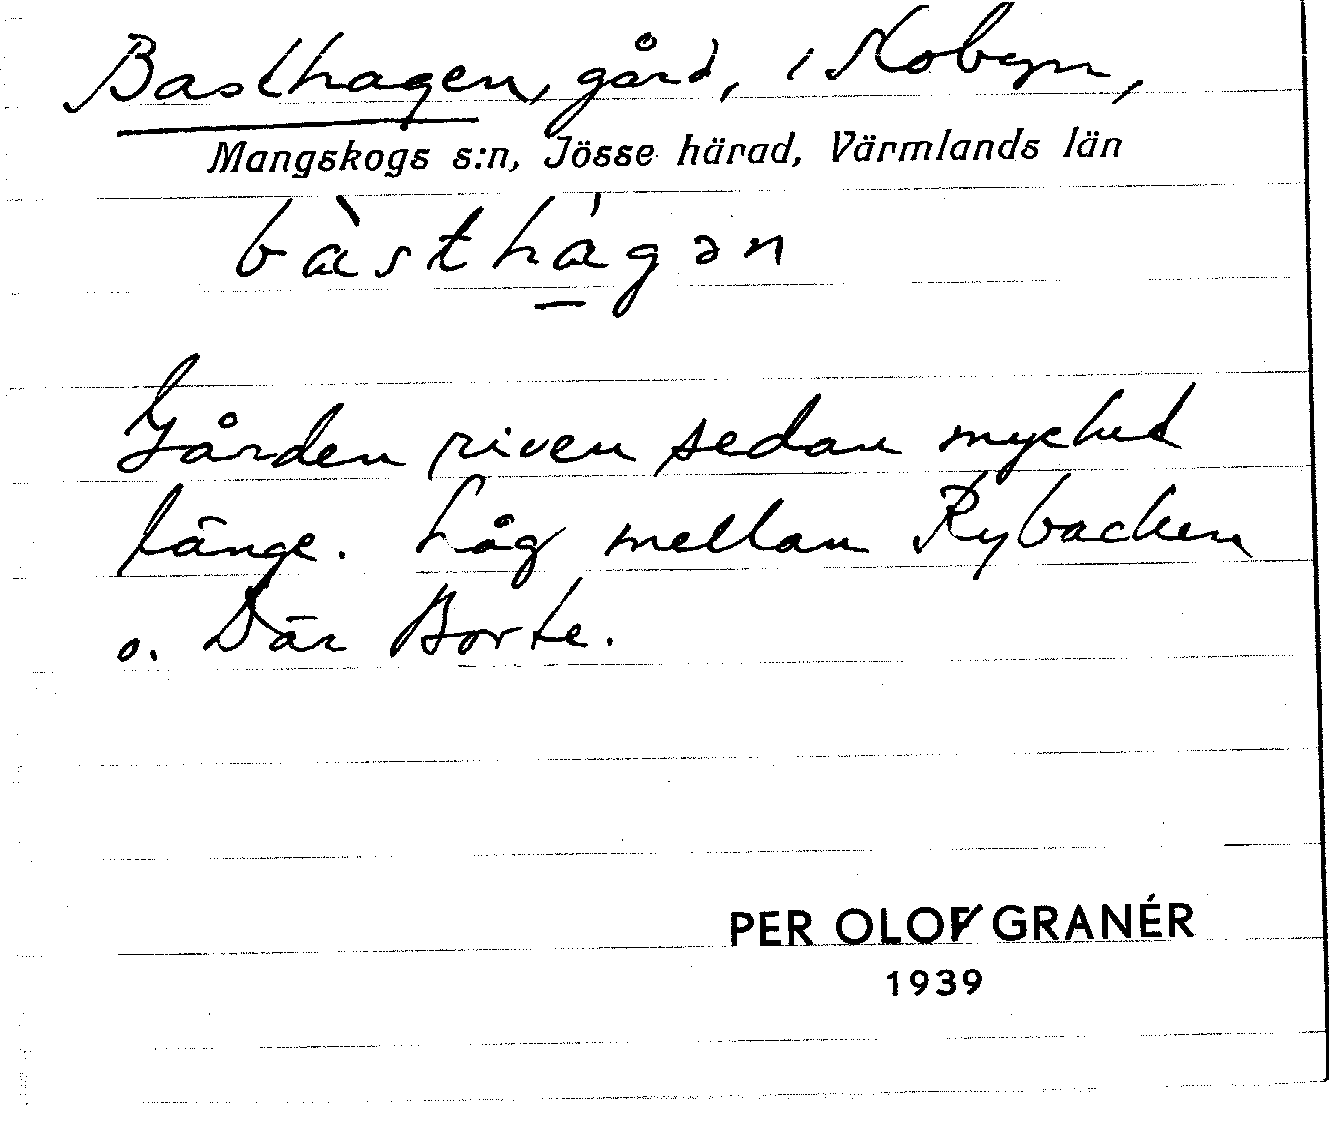 Basthagen, gård, i Nobyn,
Mangskogs s:n, Jösse härad, Värmlands län
bàsthágən
Gården riven sedan mycket
länge. Låg mellan Rybacken
o. Där Borte.
PER OLOF GRANÉR
1939